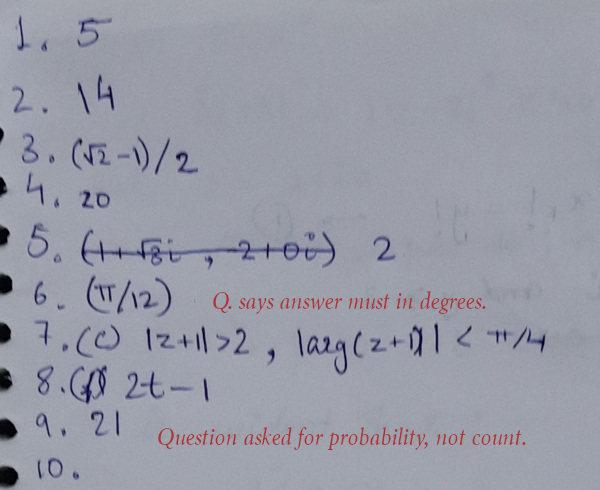 1. 5
2. 14
3. (√2-1)/2
4. 20
5. (1+√3i, -2+0i) 2
6. (π/12) Q. says answer must in degrees.
7. (C) |z+1|>2, |arg(z+1)| < π/4
8. 2t-1
9. 21
Question asked for probability, not count.
10.